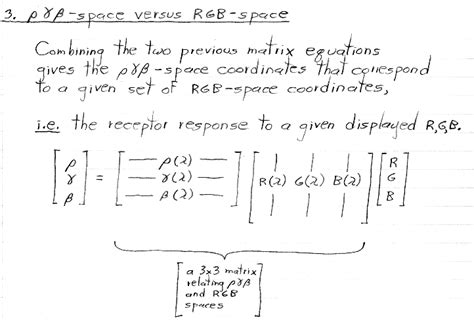 3. ργβ-space versus RGB-space
Combining the two previous matrix equations
gives the ργβ-space coordinates that correspond
to a given set of RGB-space coordinates,
i.e. the receptor response to a given displayed R,G,B.
[ρ γ β] = [— ρ(λ) — — γ(λ) — — β(λ) —] [R(λ) G(λ) B(λ)] [R G B]
a 3x3 matrix
relating ργβ
and RGB
spaces